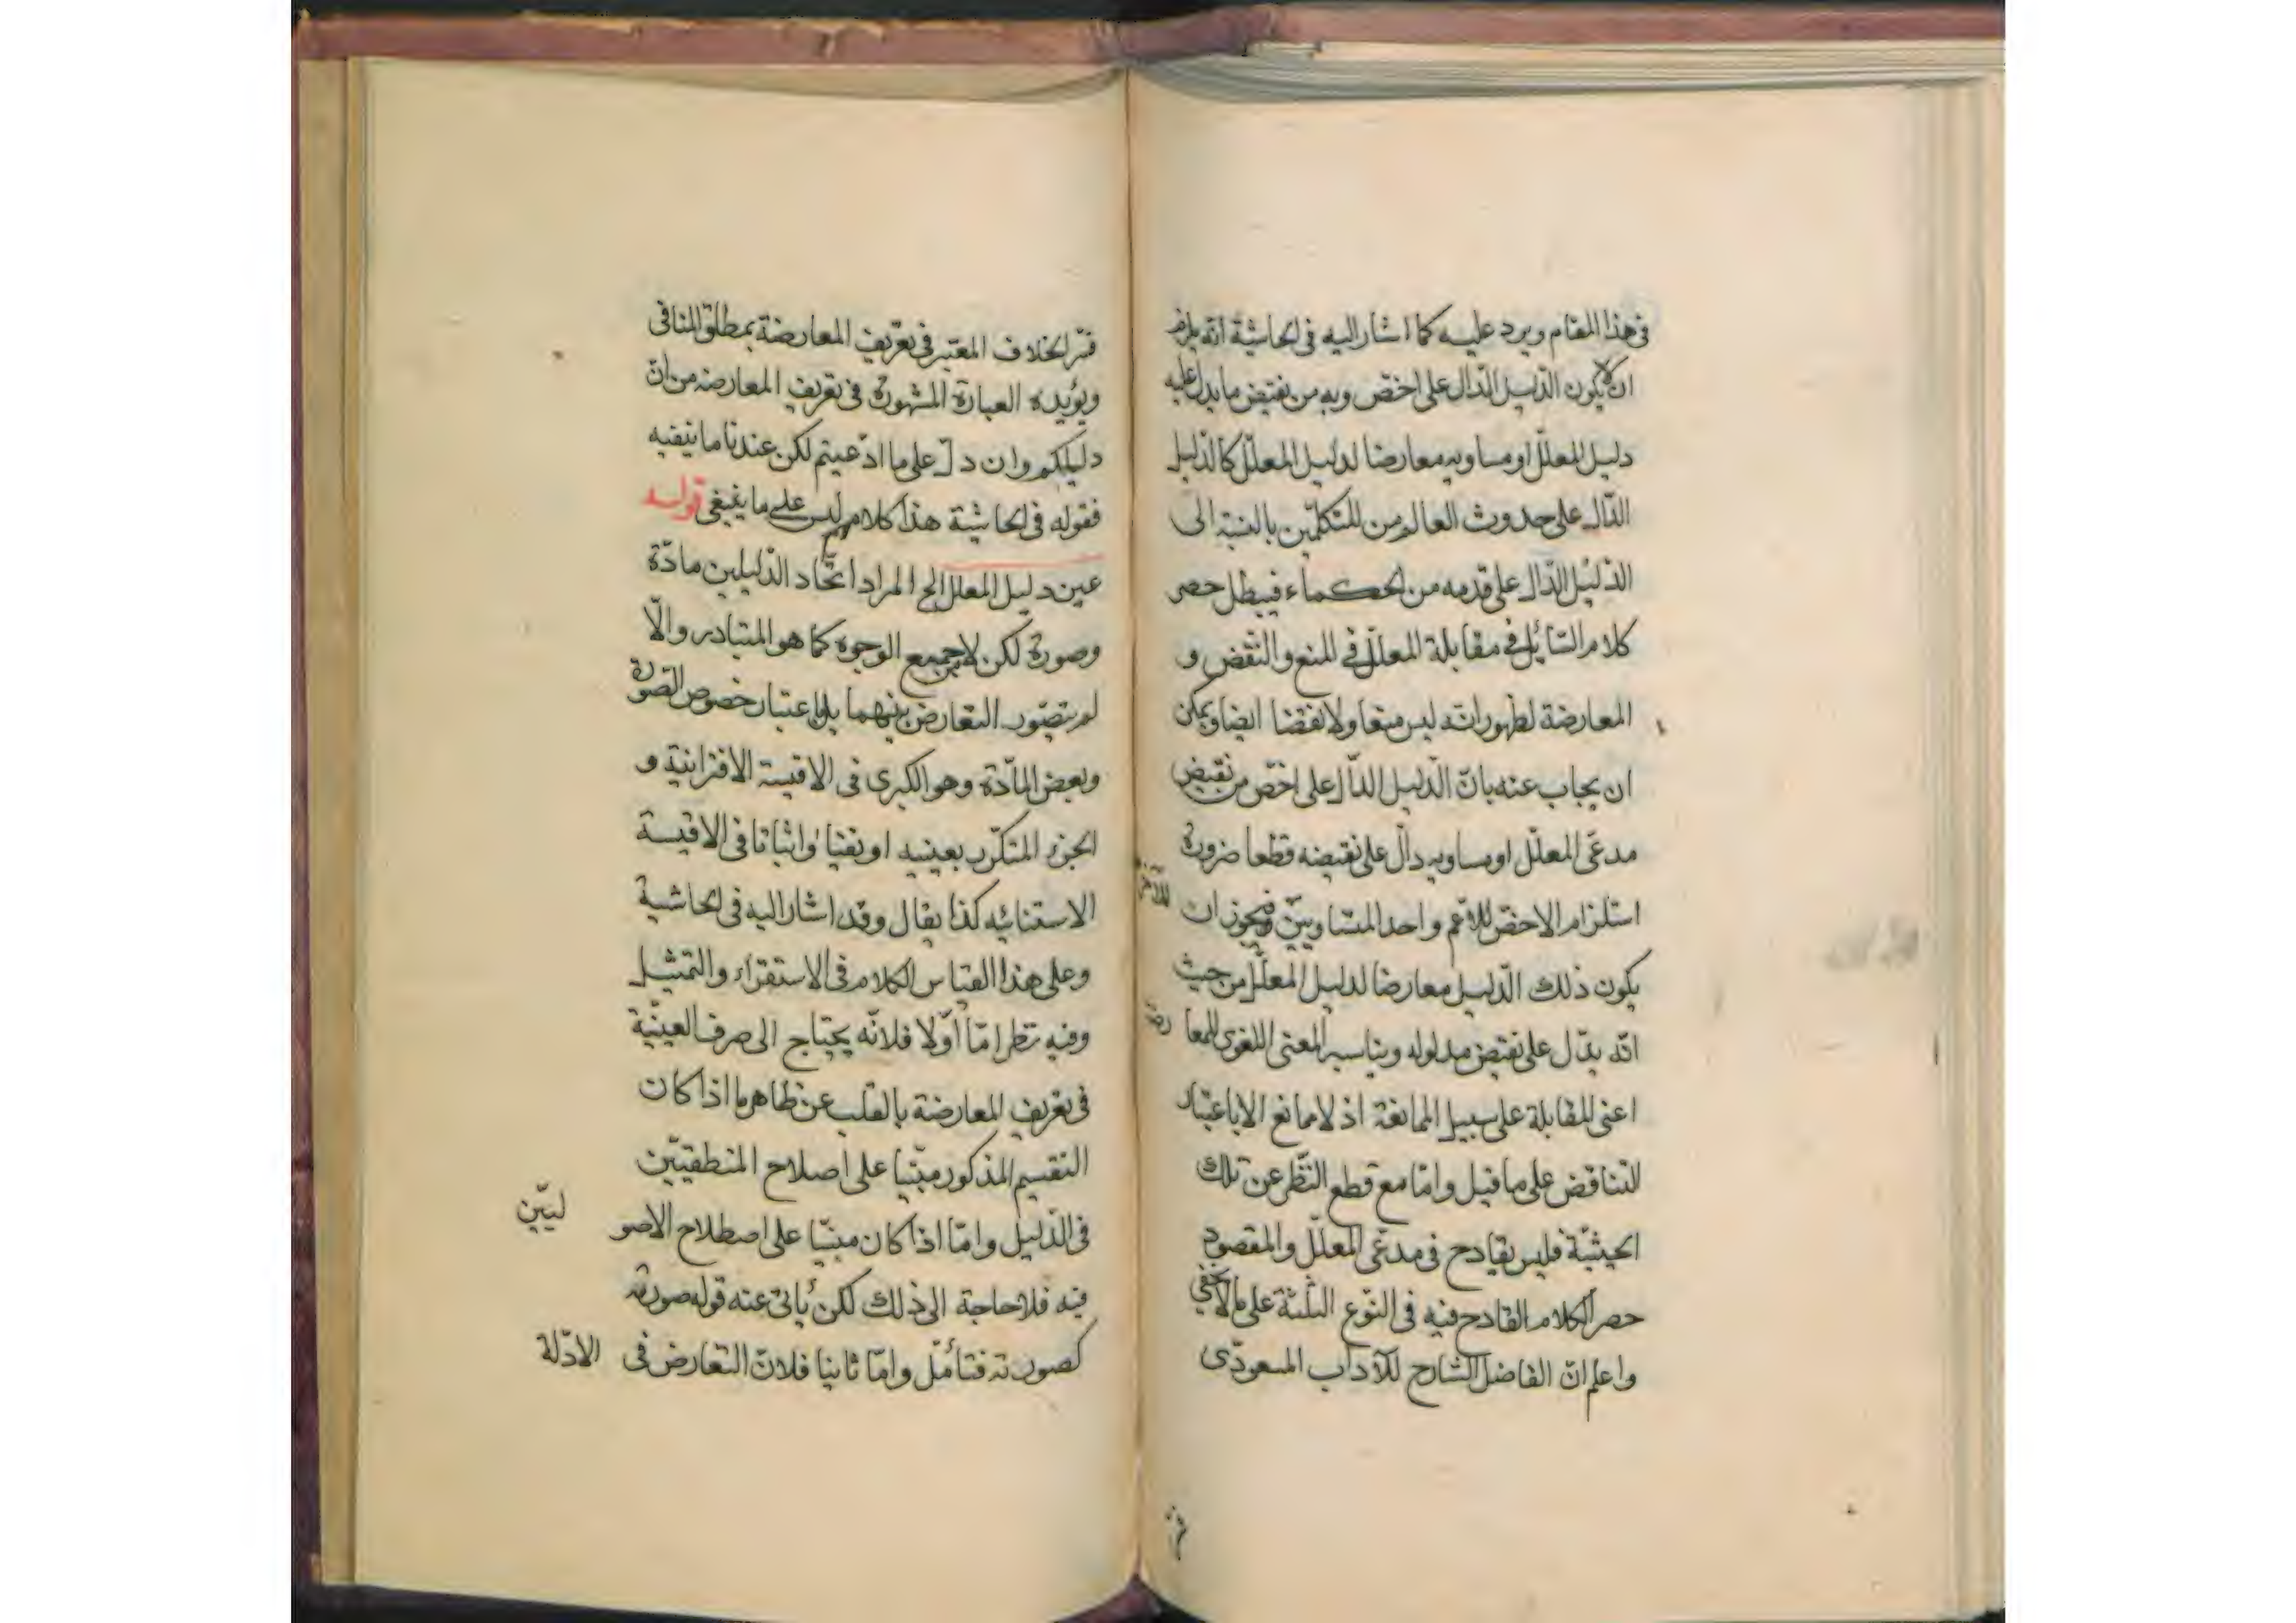 فى هذا المقام ويرد عليه كما اشار اليه فى الحاشية انه يلزم
ان لا يكون الدّليل الدّال على اخصّ ويه من نقيض ما يدل عليه
دليل المعلّل او مساويه معارضا لدليل المعلّل كالدّليل
الدّال على حدوث العالم من المتكلّمين بالنسبة الى
الدّليل الدّال على قدمه من الحكماء فيبطل حصر
كلام السّائل فى مقابلة المعلّل فى المنع والنّقض و
المعارضة لظهور انّه ليس منعا ولا نقضا ايضا ويمكن
ان يجاب عنه بانّ الدّليل الدّال على اخصّ من نقيض
مدعّى المعلّل او مساويه دالّ على نقيضه قطعا ضرورة
استلزام الاخصّ للاعم واحد المتساويين للآخر فيجوز ان
يكون ذلك الدّليل معارضا لدليل المعلّل من حيث
انّه يدّل على نقيض مدلوله ويناسبه المعنى اللغوى للمعا رضة
اعنى المقابلة على سبيل الممانعة اذ لا ممانع الا باعتبار
التناقض على ما قيل وامّا مع قطع النّظر عن تلك
الحيثيّة فليس بقادح فى مدعّى المعلّل والمقصود
حصر الكلام القادح فيه فى النّوع الثلثة على ما لا يخفى
واعلم انّ الفاضل الشارح للآداب المسعودّى
فسّر الخلاف المعتبر فى تعريف المعارضة بمطلق المنافى
ويؤيده العبارة المشهورة فى تعريف المعارضة من انّ
دليلكم وان دلّ على ما ادّعيتم لكن عندنا ما ينفيه
فقوله فى الحاشية هذا كلام ليس على ما ينبغى قوله
عين دليل المعلل الخ المراد اتّحاد الدّليلين مادّة
وصورة لكن لا جميع الوجوه كما هو المتبادر والّا
لم يتصّور التعارض بينهما بل باعتبار خصوص الصّورة
وبعض المادّة وهو الكبرى فى الاقيسة الاقترانية و
الجزء المتكرّر بعينه او نفيا واثباتا فى الاقيسة
الاستثنائيه كذا يقال وقد اشار اليه فى الحاشية
وعلى هذا القياس الكلام فى الاستقراء والتمثيل
وفيه نظر امّا اوّلا فلانّه يحتاج الى صرف العينيّة
فى تعريف المعارضة بالقلب عن ظاهرها اذا كان
التقسيم المذكور مبنّيا على اصلاح المنطقيّين
فى الدّليل وامّا اذا كان مبنيّا على اصطلاح الاصو ليّين
فيه فلا حاجة الى ذلك لكن يأبى عنه قوله صورته
كصورته فتأمّل وامّا ثانيا فلانّ التعارض فى الادّلة